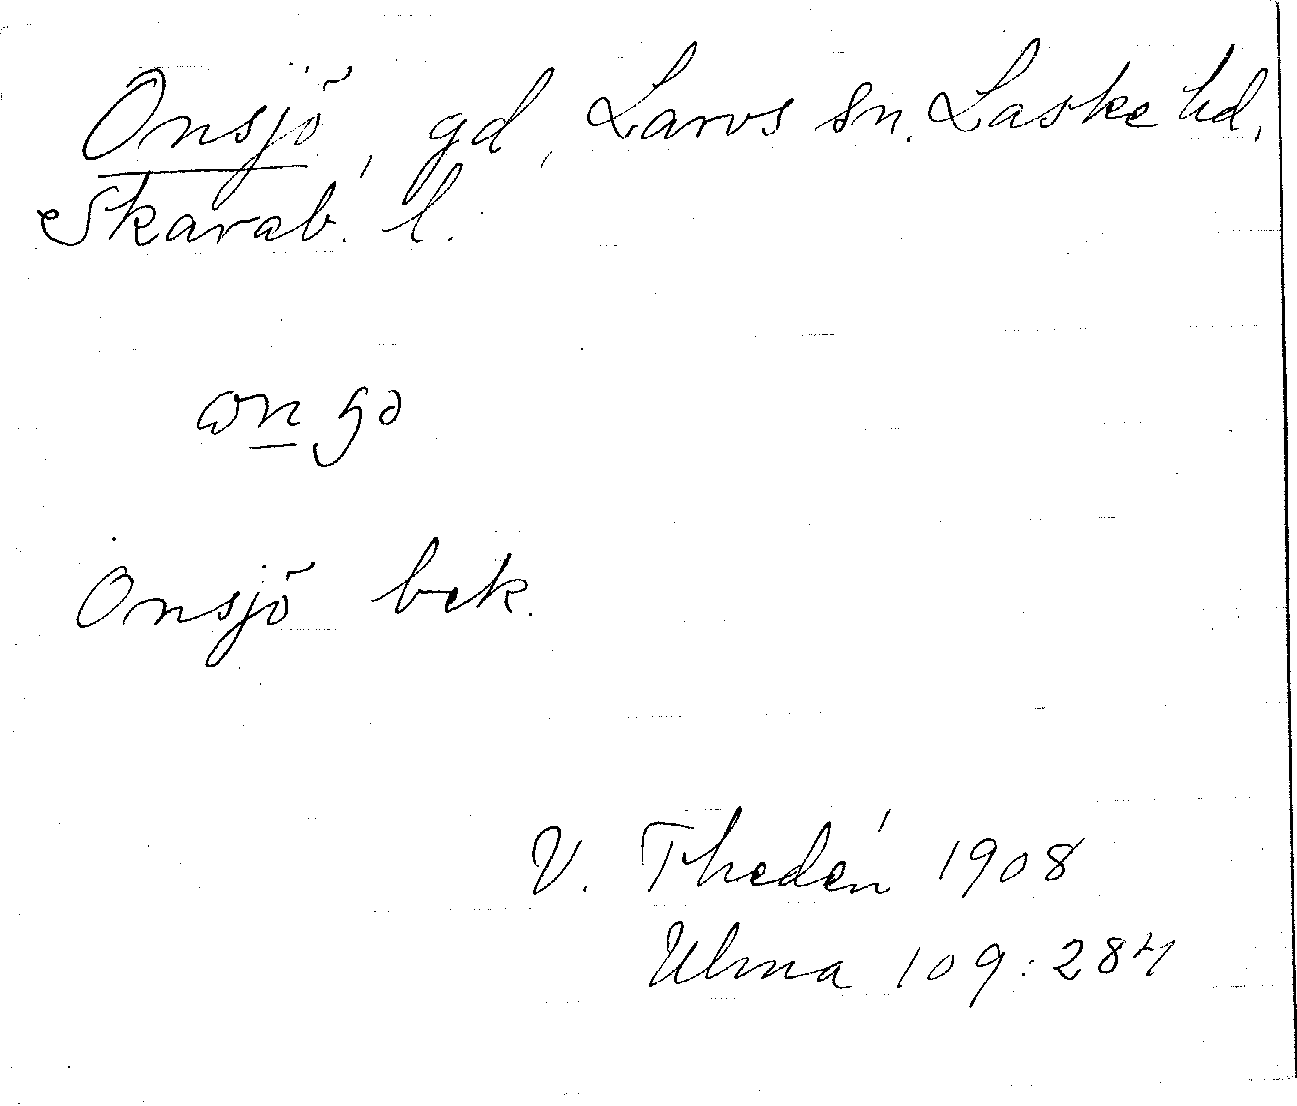 Onsjö, gd, Larvs sn. Laske hd,
Skarab. l.
Onsjö bek.
V. Thedén 1908
Ulma 109:284